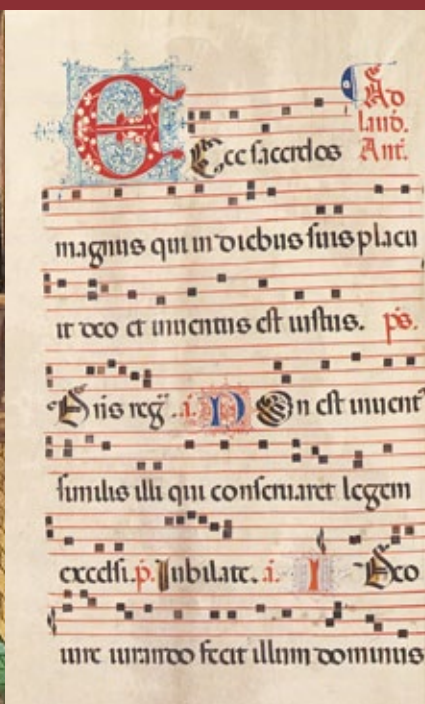 Ecce sacerdos
Ad
laud.
Ant.
magnus qui in diebus suis placu
it deo et inventus est iustus. ps.
Dns reg. a. Non est invent
similis illi qui conservaret legem
excelsi. p. Jubilate. a. Ideo
iure iurando fecit illum dominus